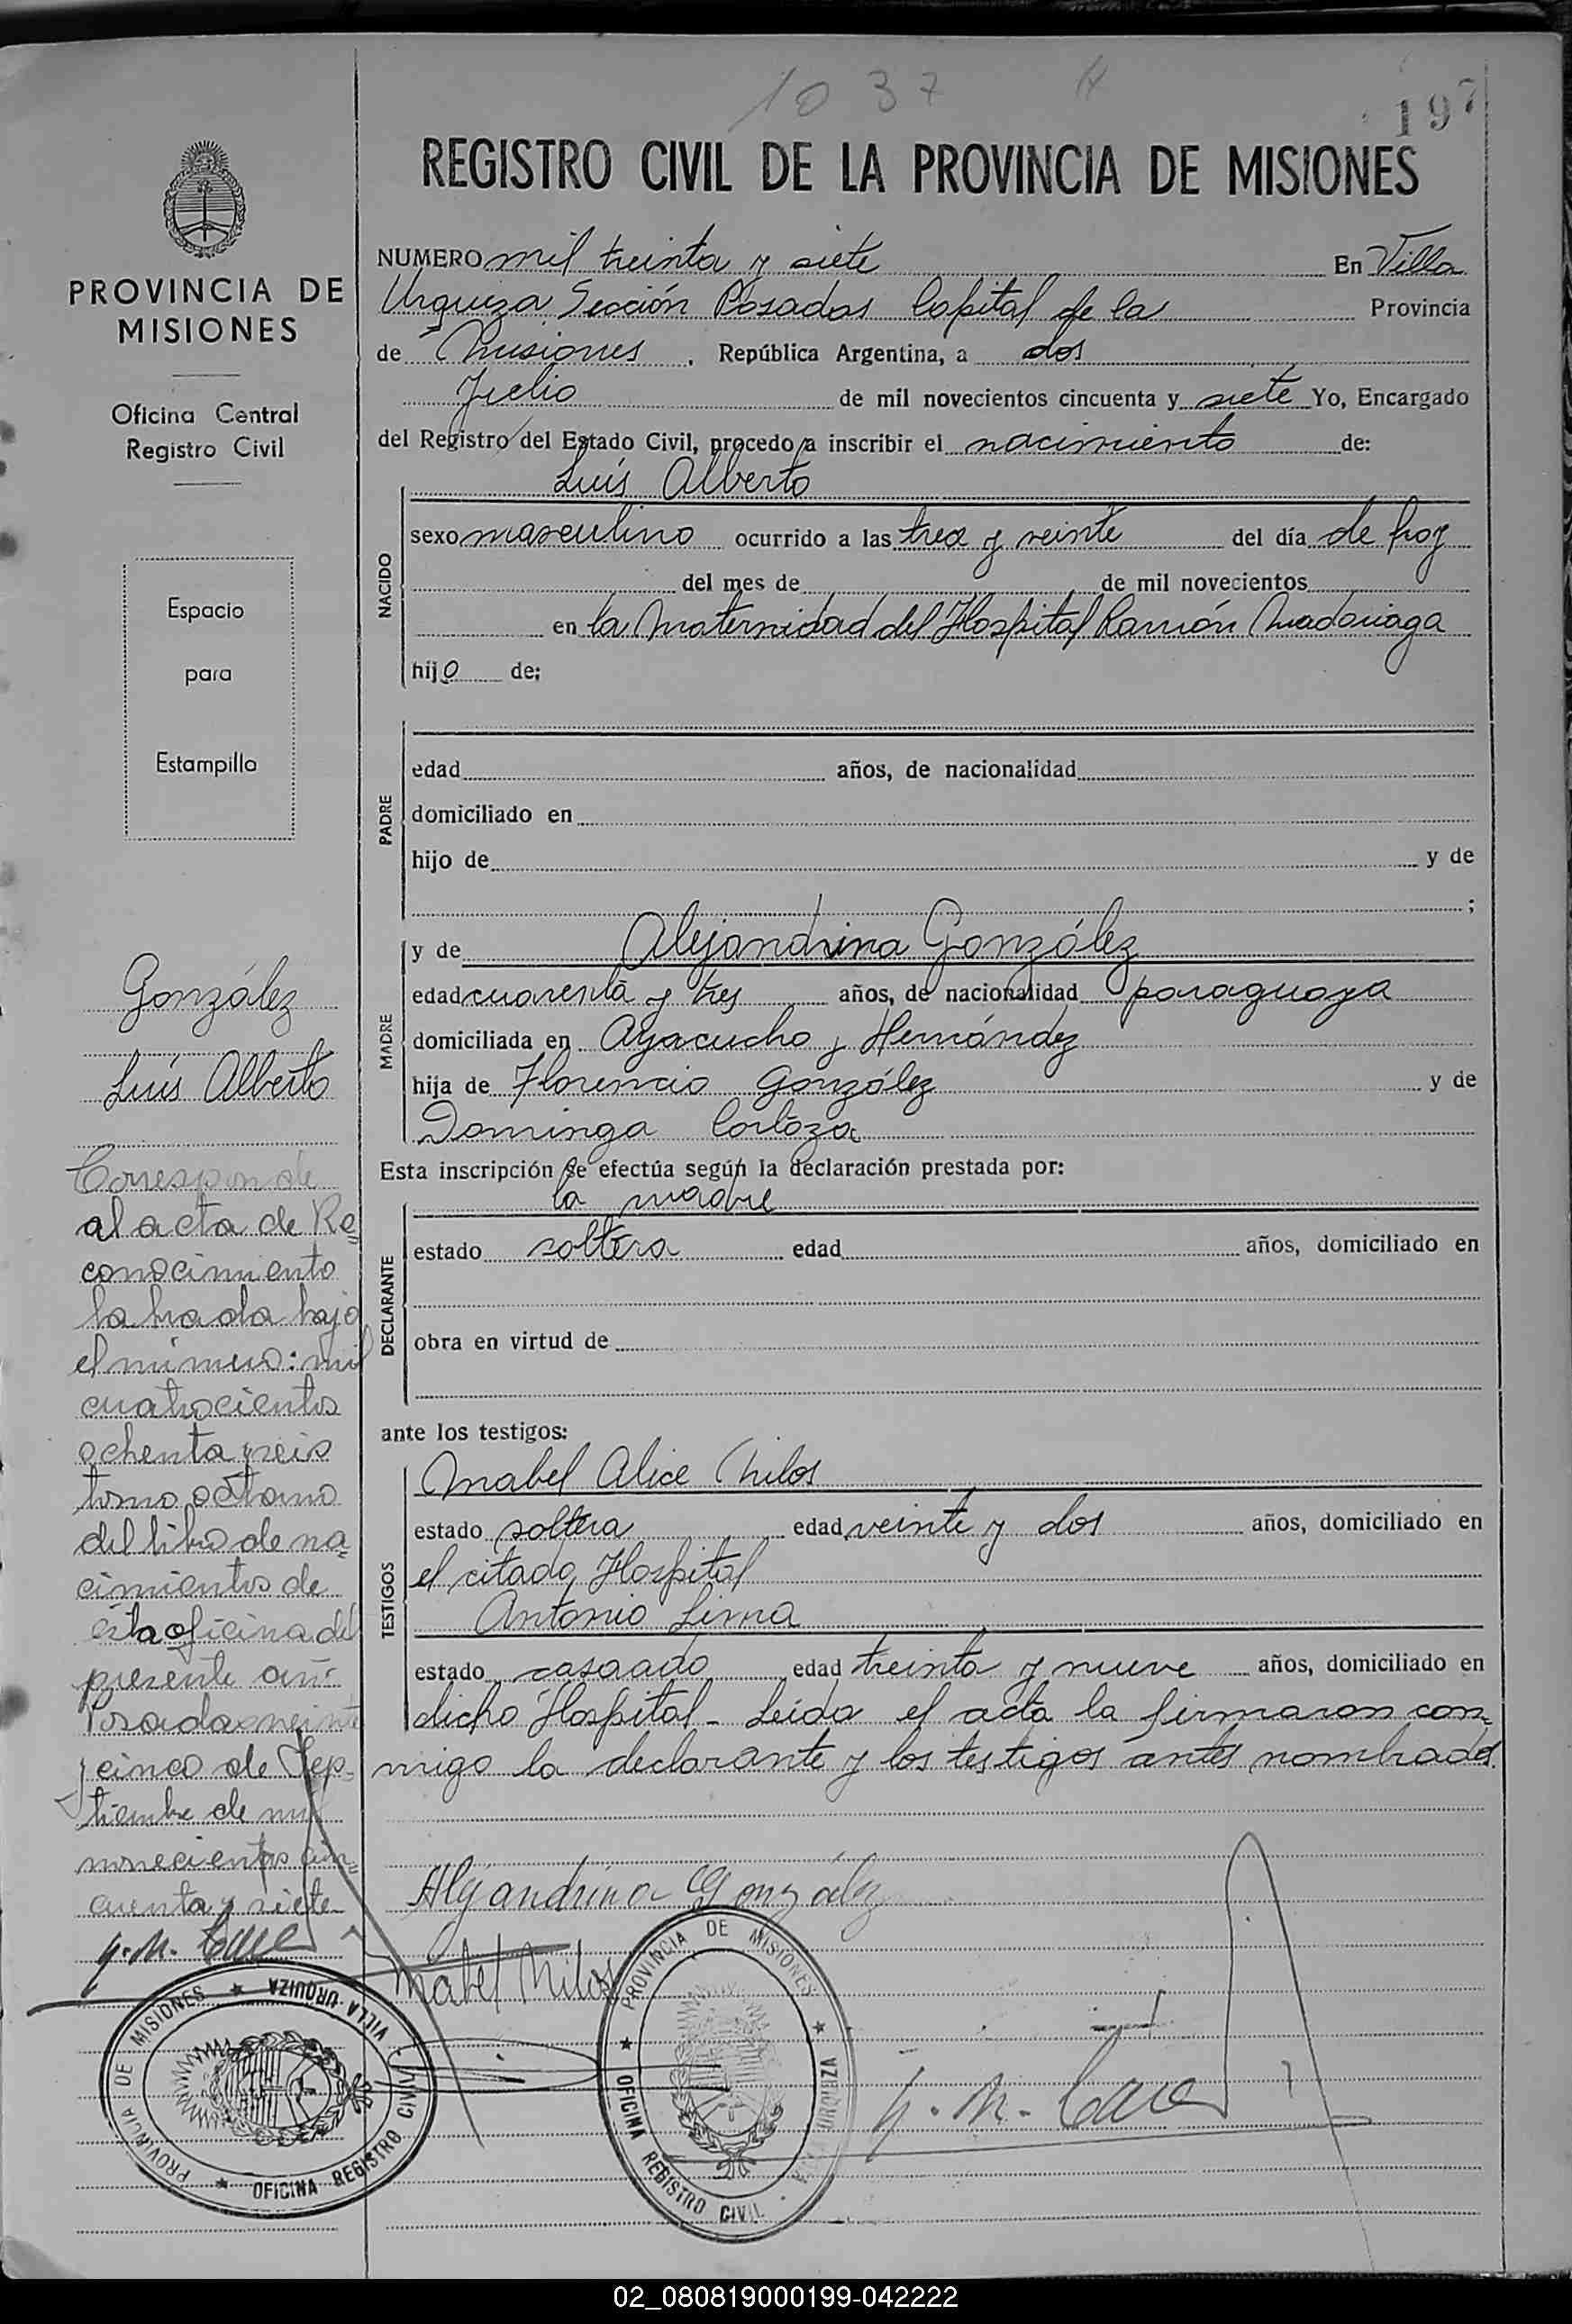 1037
197
REGISTRO CIVIL DE LA PROVINCIA DE MISIONES
PROVINCIA DE
MISIONES
Oficina Central
Registro Civil
Espacio
para
Estampilla
González
Luís Alberto
Corresponde
al acta de Re=
conocimiento
labrada bajo
el número: mil
cuatrocientos
ochenta y seis
tomo octavo
del libro de na=
cimientos de
esta oficina del
presente año
Posadas veinte
y cinco de Sep=
tiembre de mil
novecientos cin=
cuenta y siete
NUMERO mil treinta y siete En Villa
Urquiza Sección Posadas Capital de la Provincia
de Misiones, República Argentina, a dos
Julio de mil novecientos cincuenta y siete Yo, Encargado
del Registro del Estado Civil, procedo a inscribir el nacimiento de:
NACIDO
Luís Alberto
sexo masculino ocurrido a las tres y veinte del día de hoy
del mes de de mil novecientos
en la Maternidad del Hospital Ramón Madariaga
hijo de;
PADRE
edad años, de nacionalidad
domiciliado en
hijo de y de
;
MADRE
y de Alejandrina González
edad cuarenta y tres años, de nacionalidad paraguaya
domiciliada en Ayacucho y Hernández
hija de Florencio González y de
Dominga
Esta inscripción se efectúa según la declaración prestada por:
DECLARANTE
la madre
estado soltera edad años, domiciliado en
obra en virtud de
ante los testigos:
TESTIGOS
Mabel Alice Milos
estado soltera edad veinte y dos años, domiciliado en
el citado Hospital
Antonio Lima
estado casaado edad treinta y nueve años, domiciliado en
dicho Hospital - Leída el acta la firmaron con=
migo la declarante y los testigos antes nombrados.
Alejandrina González
Mabel Milos
PROVINCIA DE MISIONES ★ VILLA URQUIZA
OFICINA REGISTRO CIVIL
PROVINCIA DE MISIONES ★ VILLA URQUIZA
OFICINA REGISTRO CIVIL
02_080819000199-042222